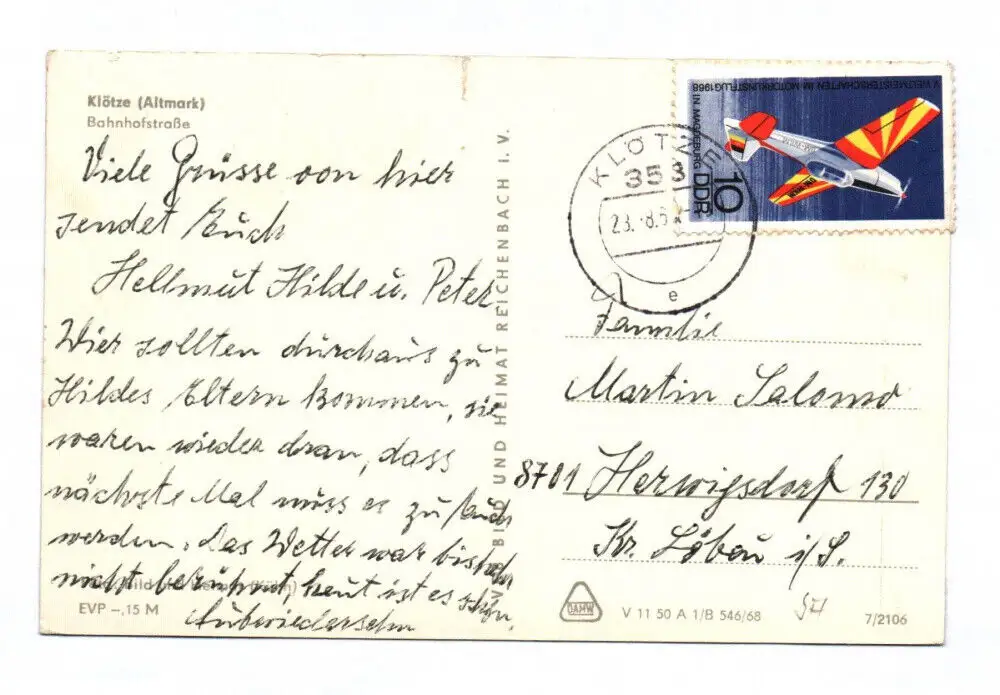 Klötze (Altmark)
Bahnhofstraße
Viele Grüsse von hier
sendet Euch
Hellmut Hilde u. Peter
Wier sollten durchaus zu
Hildes Eltern kommen, sie
waren wieder dran, dass
nächste Mal muss es zu Euch
werden. Das Wetter war bisher
nicht berühmt, heut ist es schön.
Aufwiedersehn
EVP –,15 M
BILD UND HEIMAT REICHENBACH I. V.
V. WELTMEISTERSCHAFTEN IM MOTORKUNSTFLUG 1968
IN MAGDEBURG
10
DDR
KLÖTZE
353
23.-8.6
e
Familie
Martin Salomo
8701 Herwigsdorf 130
Kr. Löbau i/S.
DAMW
V 11 50 A 1/B 546/68
7/2106